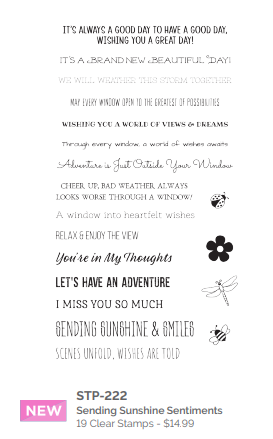 IT'S ALWAYS A GOOD DAY TO HAVE A GOOD DAY,
WISHING YOU A GREAT DAY!
IT'S A BRAND NEW BEAUTIFUL DAY!
WE WILL WEATHER THIS STORM TOGETHER
MAY EVERY WINDOW OPEN TO THE GREATEST OF POSSIBILITIES
WISHING YOU A WORLD OF VIEWS & DREAMS
Through every window, a world of wishes awaits
Adventure is Just Outside Your Window
CHEER UP, BAD WEATHER ALWAYS
LOOKS WORSE THROUGH A WINDOW!
A window into heartfelt wishes
RELAX & ENJOY THE VIEW
You're in My Thoughts
LET'S HAVE AN ADVENTURE
I MISS YOU SO MUCH
SENDING SUNSHINE & SMILES
SCENES UNFOLD, WISHES ARE TOLD
NEW
STP-222
Sending Sunshine Sentiments
19 Clear Stamps - $14.99